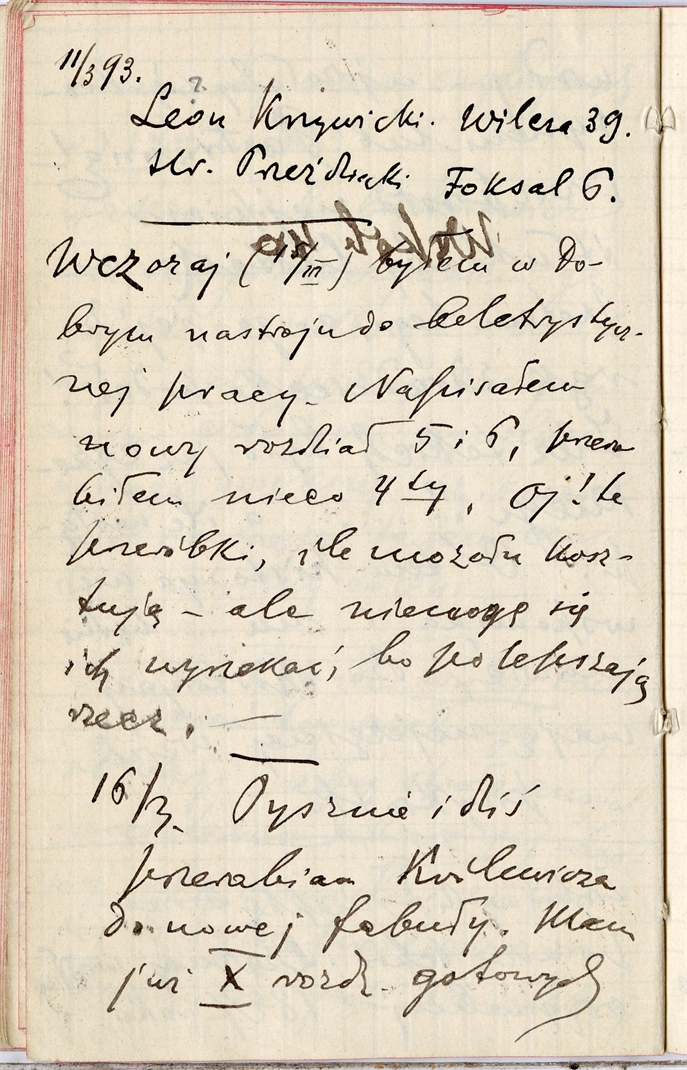 11/3 93.
Leon Krzywicki. Wilcza 39.
Hr. Przeździecki Foksal 6.
Wczoraj (15/III) byłem w do-
brym nastroju do beletrystycz-
nej pracy. Napisałem
nowy rozdział 5 i 6, przero
biłem nieco 4ty. Oj! te
przeróbki, ile mozołu kosz-
tują – ale niemogę się
ich wyrzekać, bo polepszają
rzecz. —
16/3. Pysznie i dziś
przerabiam
do nowej fabuły. Mam
już X rozdz. gotowych